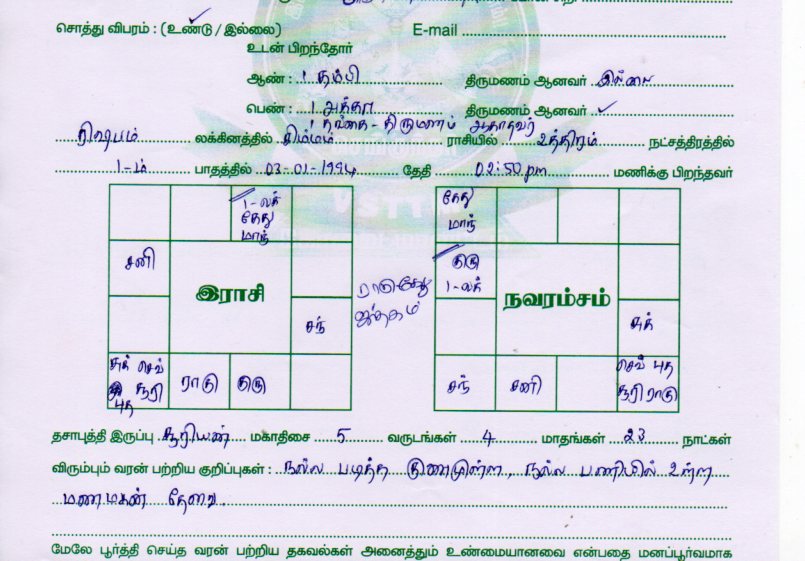 சொத்து விபரம் : (உண்டு / இல்லை) E-mail
உடன் பிறந்தோர்
ஆண் : 1 தம்பி திருமணம் ஆனவர் இல்லை
பெண் : 1 அக்கா திருமணம் ஆனவர் ✓
1 தங்கை - திருமணம் ஆகாதவர்
ரிஷபம் லக்கினத்தில் சிம்மம் ராசியில் உத்திரம் நட்சத்திரத்தில்
1-ம் பாதத்தில் 03-01-1994 தேதி 02:50 pm மணிக்கு பிறந்தவர்
1-லக்
கேது
மாந்
சனி
இராசி
சந்
சுக் செவ்
சூரி
புத
ராகு
குரு
ராகு கேது
ஜாதகம்
கேது
மாந்
குரு
1-லக்
நவரம்சம்
சுக்
சந்
சனி
செவ் புத
சூரி ராகு
தசாபுத்தி இருப்பு சூரியன் மகாதிசை 5 வருடங்கள் 4 மாதங்கள் 23 நாட்கள்
விரும்பும் வரன் பற்றிய குறிப்புகள் : நல்ல படித்த குணமுள்ள, நல்ல பணியில் உள்ள
மணமகன் தேவை.
மேலே பூர்த்தி செய்த வரன் பற்றிய தகவல்கள் அனைத்தும் உண்மையானவை என்பதை மனப்பூர்வமாக